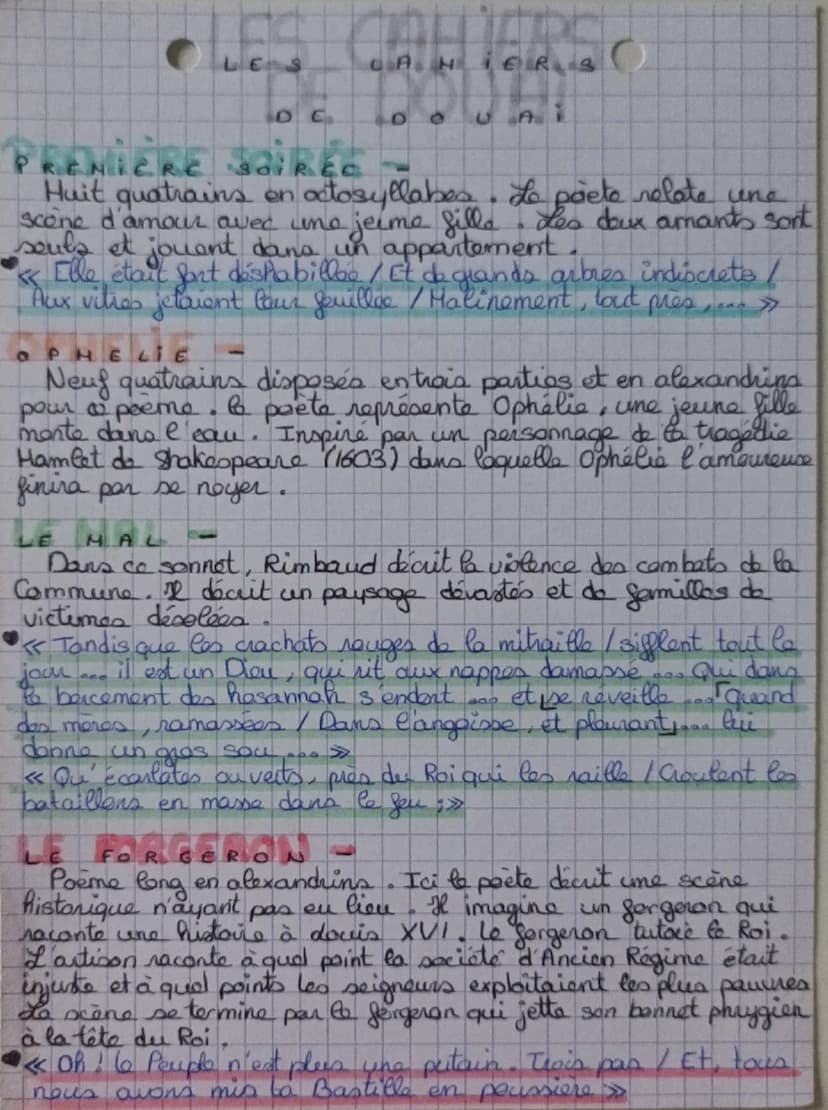 LES CAHiERS
DE DOUAi
PREMIÈRE SOIRÉE -
Huit quatrains en octosyllabes. Le poète relate une
scène d'amour avec une jeune fille. Les deux amants sont
seuls et jouent dans un appartement.
« Elle était fort déshabillée / Et de grands arbres indiscrets /
Aux vitres jetaient leur feuillée / Malinement, tout près, ... »
OPHELiE -
Neuf quatrains disposés en trois parties et en alexandrins
pour ce poème. Le poète représente Ophélie, une jeune fille
morte dans l'eau. Inspiré par un personnage de la tragédie
Hamlet de Shakespeare (1603) dans laquelle Ophélie l'amoureuse
finira par se noyer.
LE MAL -
Dans ce sonnet, Rimbaud décrit la violence des combats de la
Commune. Il décrit un paysage dévastés et de familles de
victimes désolées.
« Tandis que les crachats rouges de la mitraille / sifflent tout le
jour ... il est un Dieu, qui rit aux nappes damassé ... Qui dans
le bercement des hosannah s'endort ... et se réveille ... quand
des mères, ramassées / Dans l'angoisse, et pleurant, ... lui
donne un gros sou ... »
« Qu'écarlates ou verts, près du Roi qui les raille / Croulent les
bataillons en masse dans le feu ; »
LE FORGERON -
Poème long en alexandrins. Ici le poète décrit une scène
historique n'ayant pas eu lieu. Il imagine un forgeron qui
raconte une histoire à Louis XVI. Le forgeron tutoie le Roi.
L'artisan raconte à quel point la société d'Ancien Régime était
injuste et à quel points les seigneurs exploitaient les plus pauvres
La scène se termine par le forgeron qui jette son bonnet phrygien
à la tête du Roi.
« Oh ! le Peuple n'est plus une putain. Trois pas / Et, tous
nous avons mis ta Bastille en poussière »